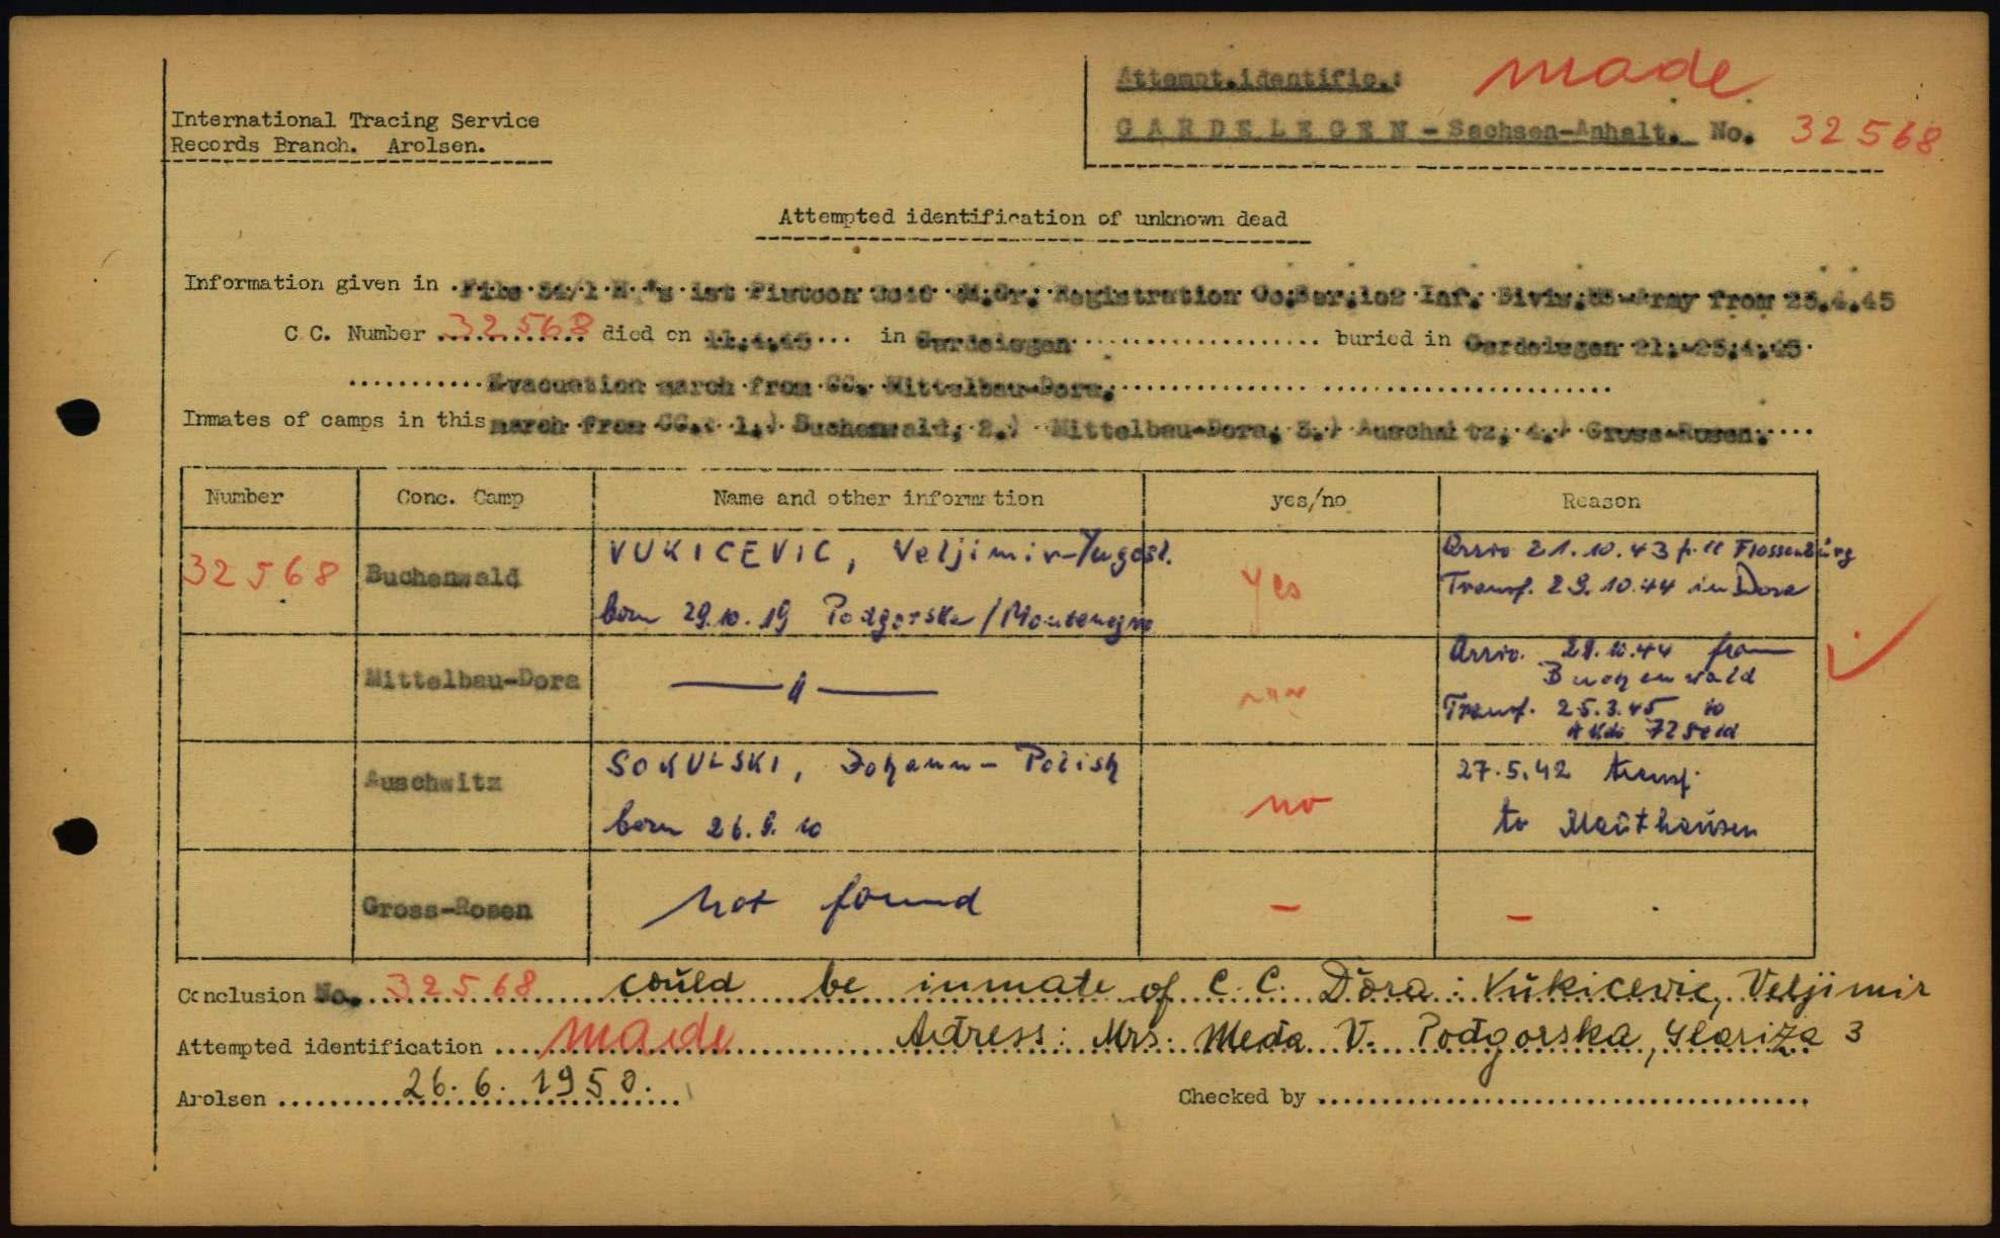 Attempt.identific.: made
International Tracing Service
GARDELEGEN - Sachsen-Anhalt. No. 32568
Records Branch. Arolsen.
Attempted identification of unknown dead
Information given in Registration Inf. Army from 25.4.45
C.C. Number 32568 died on 11.4.45 in Gardelegen buried in Gardelegen 21.-25.4.45
Evacuation march from CC. Mittelbau-Dora.
Inmates of camps in this march from CC.: 1.) Buchenwald, 2.) Mittelbau-Dora, 3.) Auschwitz, 4.) Gross-Rosen.
Number Conc. Camp Name and other information yes/no Reason
32568 Buchenwald VUKICEVIC, Veljimir-Yugosl. yes Arriv 21.10.43 Flossenbürg
born 29.10.19 Podgorska/Montenegro Transf. 29.10.44 in Dora
Mittelbau-Dora — " — Arriv. 29.10.44 from
Buchenwald
Transf. 25.3.45
Auschwitz SOKULSKI, Johann - Polish no 27.5.42 transf.
born 26.9.10 to Mauthausen
Gross-Rosen not found - -
Conclusion No. 32568 could be inmate of C.C. Dora: Vukicevic, Veljimir
Attempted identification made Adress: Mrs. Meda V. Podgorska, 3
Arolsen 26.6.1950. Checked by